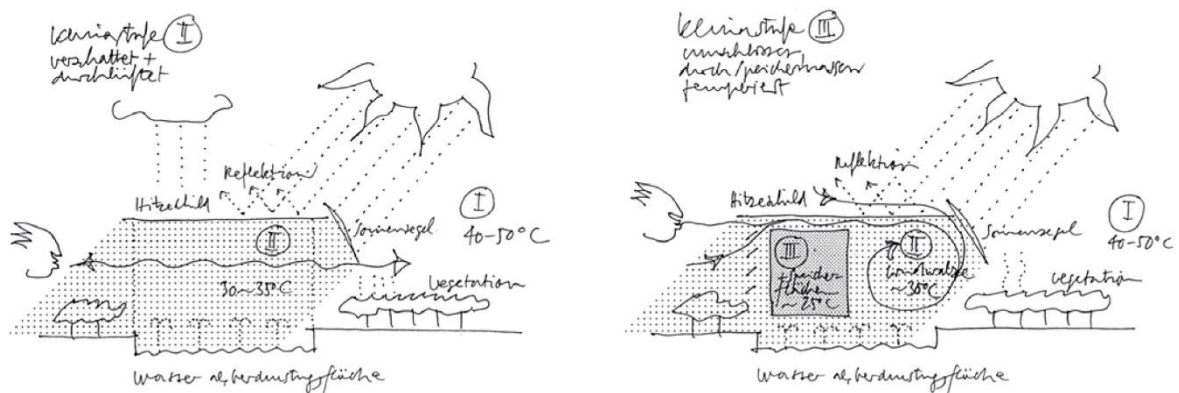 Klimastufe II
verschattet +
durchlüftet
Reflektion
Hitzeschild
I
40-50°C
Sonnensegel
II
30-35°C
Vegetation
Wasser als Verdunstungsfläche
Klimastufe III
umschlossen,
durch Speichermassen
temperiert
Reflektion
Hitzeschild
I
40-50°C
Sonnensegel
III
Speicher
flächen
~25°C
II
Windwalze
~30°C
Vegetation
Wasser als Verdunstungsfläche